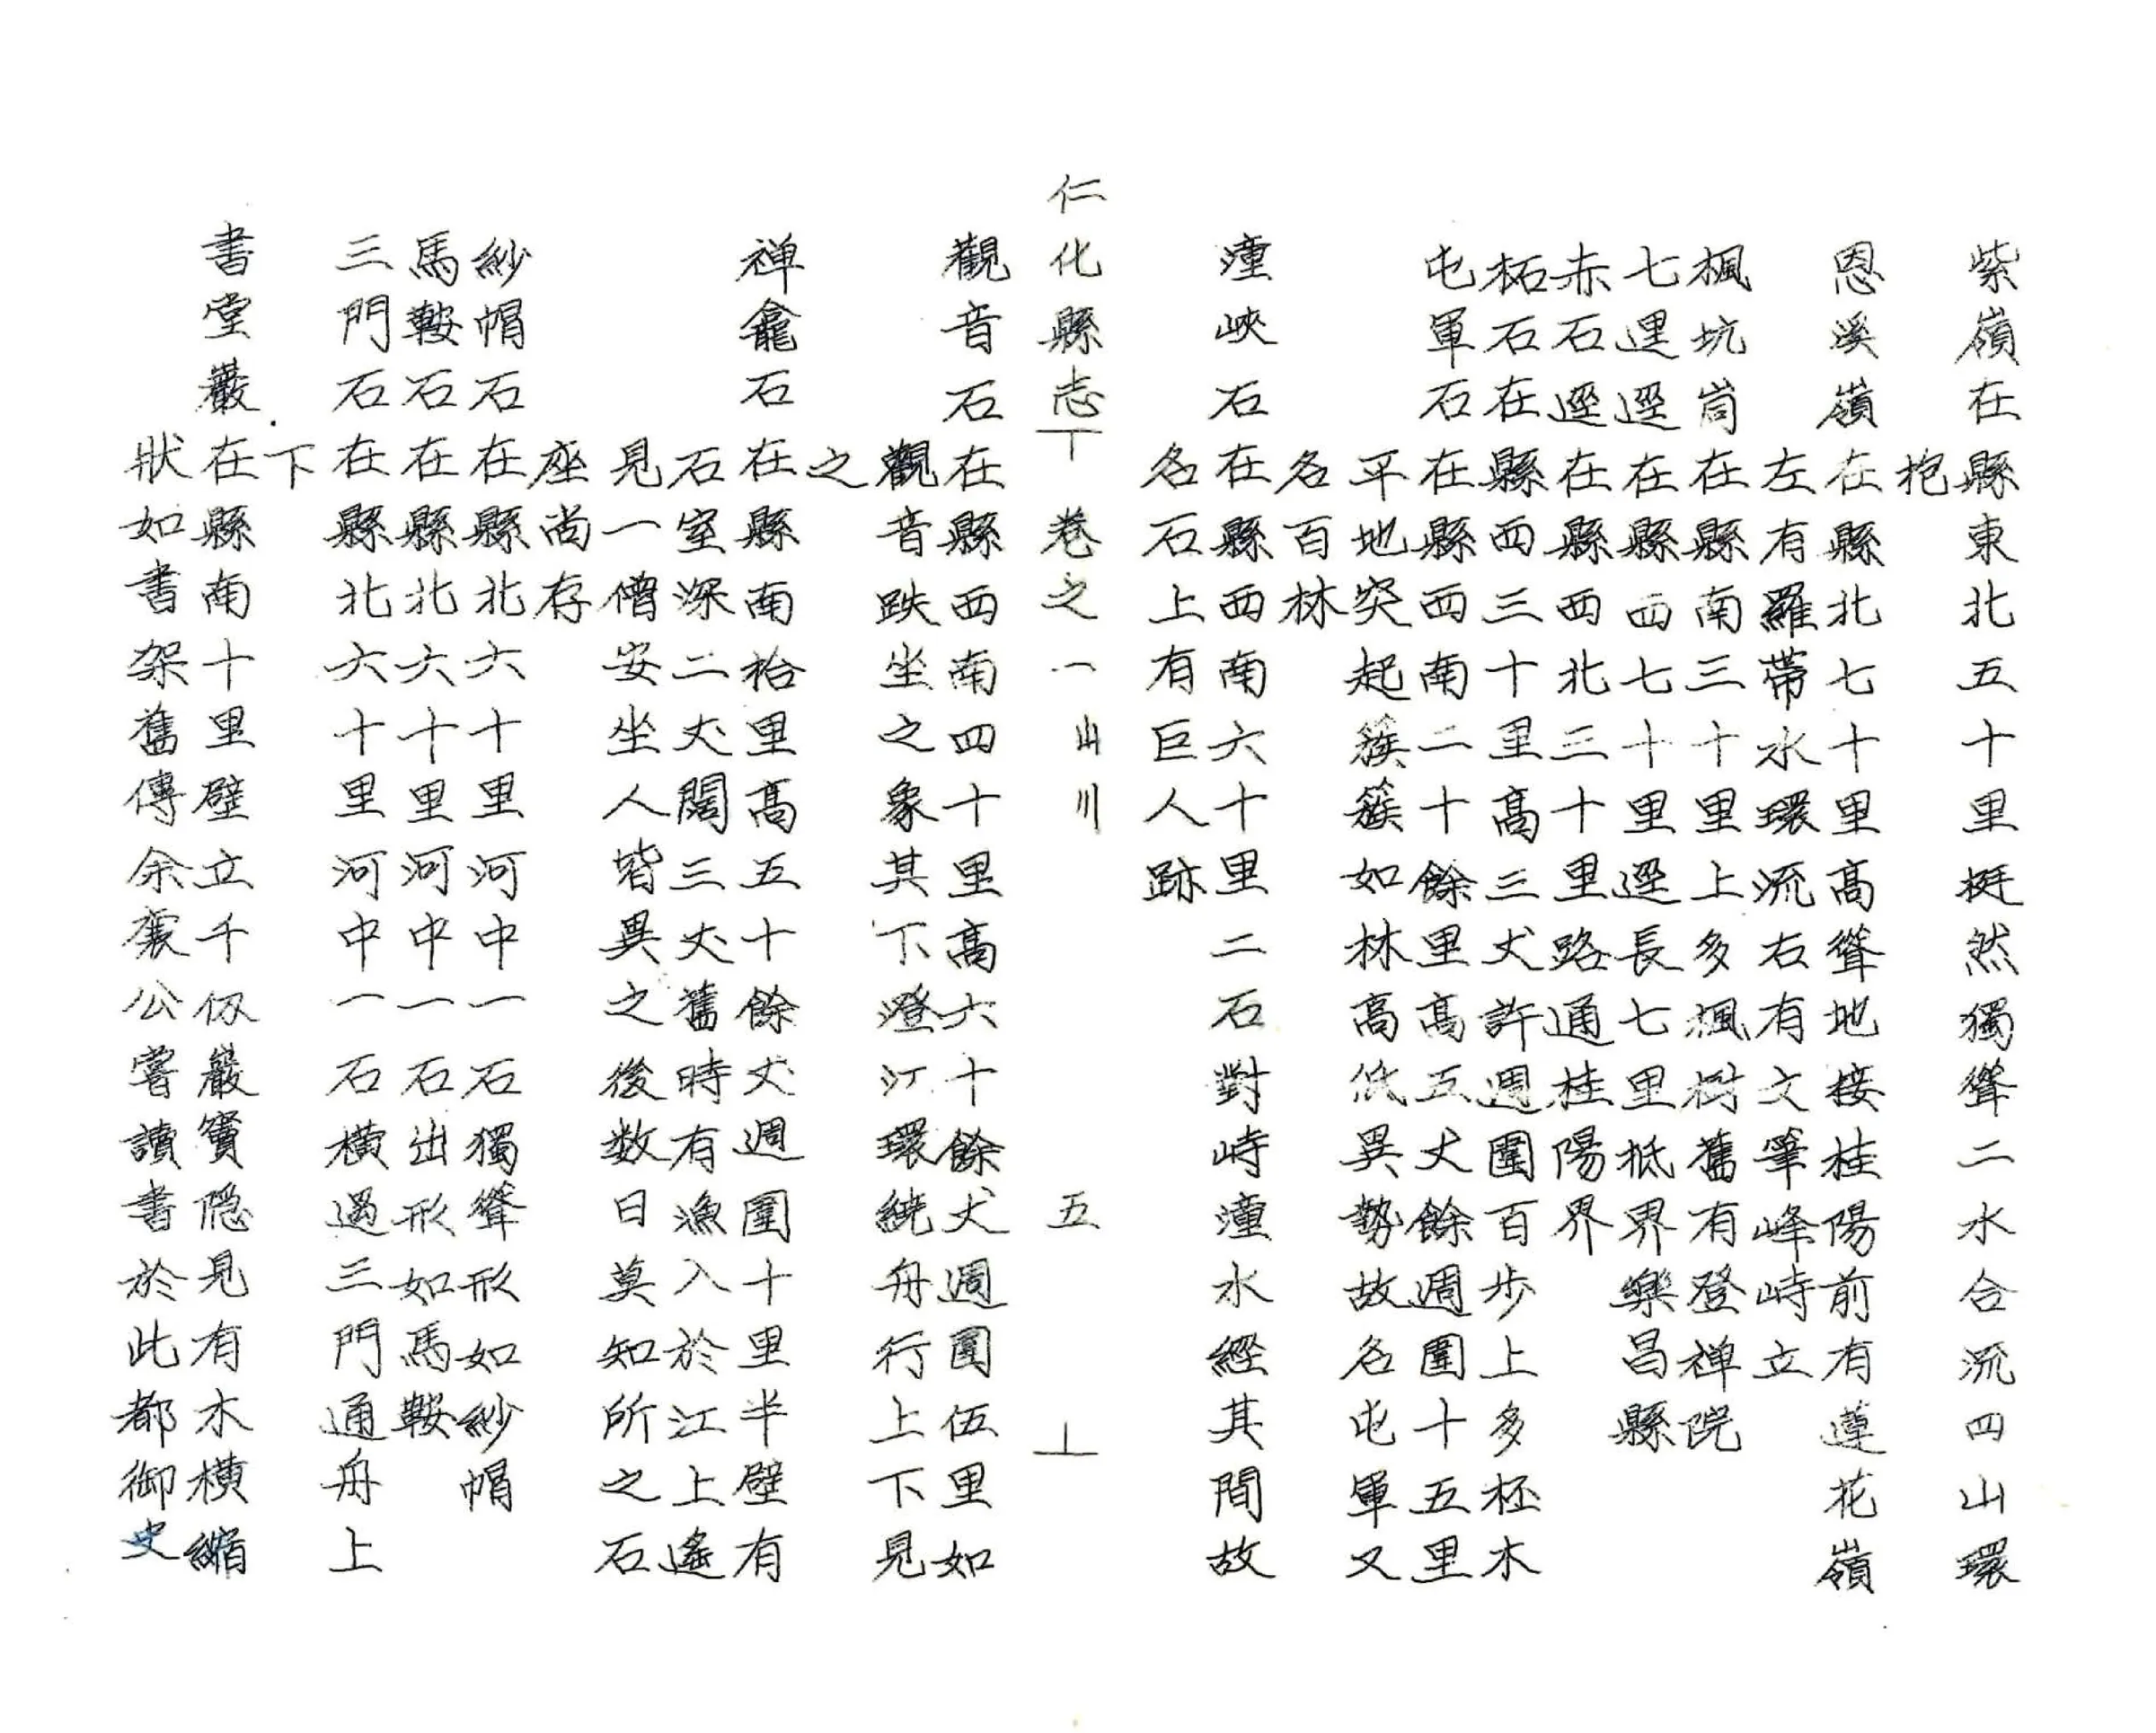 紫嶺在縣東北五十里挺然獨聳二水合流四山環
抱
恩溪嶺在縣北七十里高聳地接桂陽前有蓮花嶺
左有羅帶水環流右有文筆峰峙立
楓坑崗在縣南三十里上多楓樹舊有登禅院
七里逕在縣西七十里逕長七里抵界樂昌縣
赤石逕在縣西北三十里路通桂陽界
柘石在縣西三十里高三丈許週圍百步上多柸木
屯軍石在縣西南二十餘里高五丈餘週圍十五里
平地突起簇簇如林高低異勢故名屯軍又
名百林
潼峽石在縣西南六十里二石對峙潼水經其間故
名石上有巨人跡
仁化縣志 卷之一 山川 五
觀音石在縣西南四十里高六十餘丈週圍伍里如
觀音趺坐之象其下澄江環繞舟行上下見
之
禅龕石在縣南拾里高五十餘丈週圍十里半壁有
石室深二丈闊三丈舊時有漁入於江上遙
見一僧安坐人皆異之後数日莫知所之石
座尚存
紗帽石在縣北六十里河中一石獨聳形如紗帽
馬鞍石在縣北六十里河中一石出形如馬鞍
三門石在縣北六十里河中一石橫過三門通舟上
下
書堂巖在縣南十里壁立千仞巖竇隠見有木橫縮
狀如書架舊傳余襄公嘗讀書於此都御史